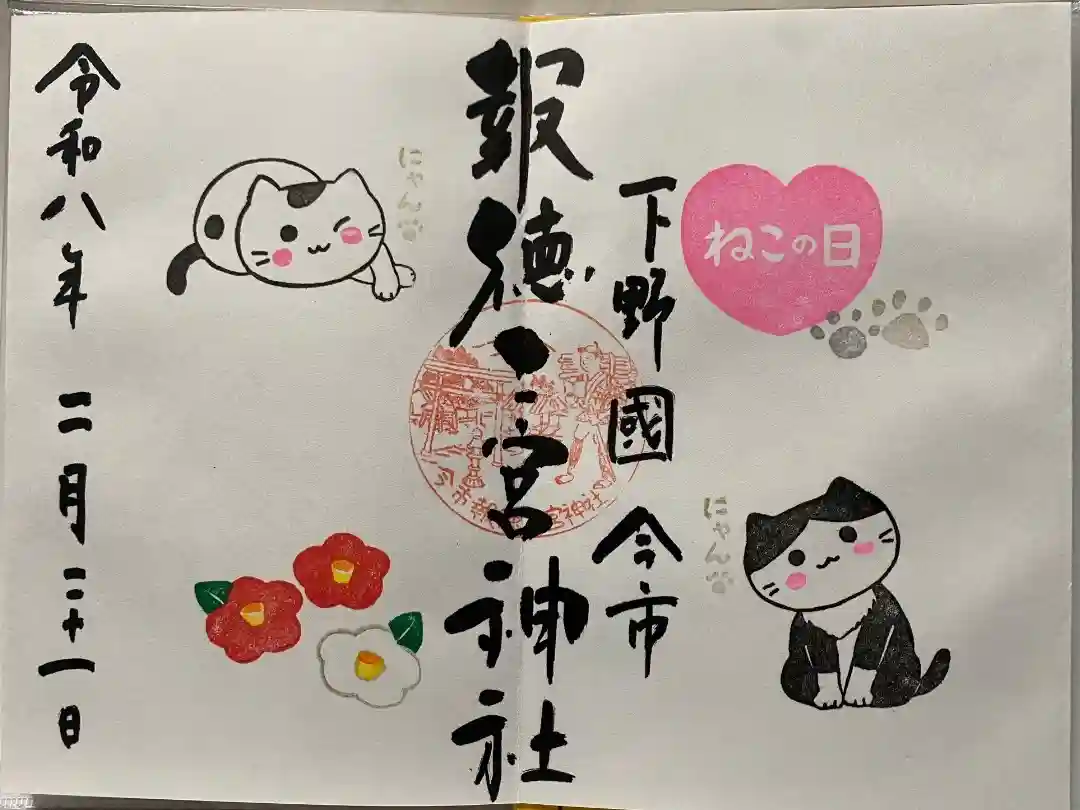 ねこの日
下野國 今市
にゃん
報徳二宮神社
今市報徳二宮神社
にゃん
令和八年 二月二十一日